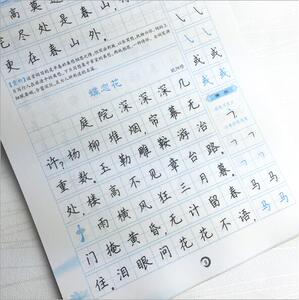 尽处是春山,
更在春山外。
蝶恋花
欧阳修
庭院深深深几
许?杨柳堆烟,帘幕无
重数。玉勒雕鞍游冶
处,楼高不见章台路。
雨横风狂三月暮,
门掩黄昏,无计留春
住。泪眼问花花不语,
马马
马马